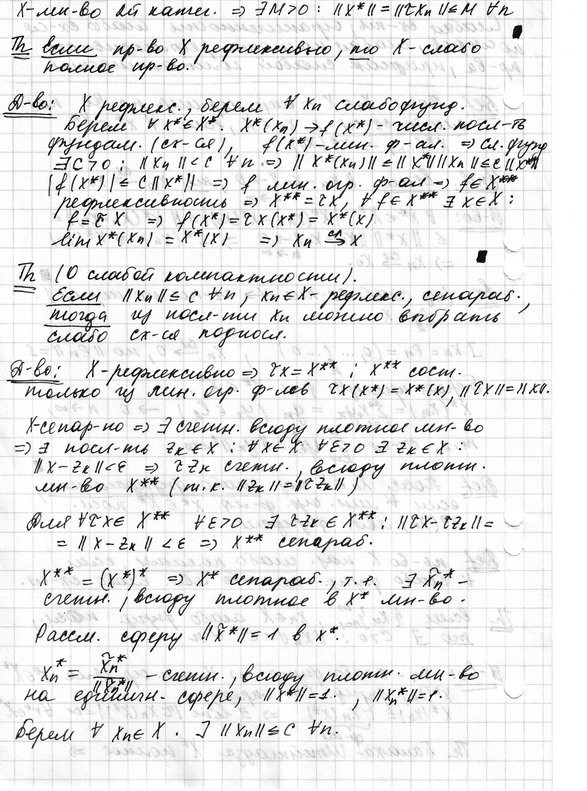 X-мн-во II катег. ⇒ ∃M>0 : ||X*|| = ||τXn|| ≤ M ∀n
Th если пр-во X рефлексивно, то X-слабо
полное пр-во.
Д-во: X рефлекс., берем ∀ xn слабо фунд.
Берем ∀ X*∈X*. X*(xn) → f(X*) - числ. посл-ть
фундам. (сх-ся), f(X*) - лин. ф-ал. ⇒ сл. фунд
∃C>0 : ||xn|| < C ∀n ⇒ ||X*(xn)|| ≤ ||X*|| ||xn|| ≤ C||X*||
|f(X*)| ≤ C||X*|| ⇒ f лин. огр. ф-ал ⇒ f∈X**
рефлексивность ⇒ X** = τX, ∀f∈X** ∃x∈X :
f=τX ⇒ f(X*) = τX(X*) = X*(X)
lim X*(Xn) = X*(X) ⇒ Xn →сл X
Th (О слабой компактности).
Если ||xn|| ≤ C ∀n, xn∈X - рефлекс., сепараб.,
тогда из посл-ти xn можно выбрать
слабо сх-ся подпосл.
Д-во: X-рефлексивно ⇒ τX = X** ; X** сост.
только из лин. огр. ф-лов τX(X*) = X*(X), ||τX|| = ||X||.
X-сепар-но ⇒ ∃ счетн. всюду плотное мн-во
⇒ ∃ посл-ть zk∈X : ∀x∈X ∀ε>0 ∃ zk∈X :
||X-zk||<ε ⇒ τzk счетн., всюду плотн.
мн-во X** (т.к. ||zk|| = ||τzk||)
Для ∀τX∈X** ∀ε>0 ∃ τzk∈X** : ||τX-τzk|| =
= ||X-zk|| < ε ⇒ X** сепараб.
X** = (X*)* ⇒ X* сепараб., т.е. ∃ X̃n* -
счетн., всюду плотное в X* мн-во.
Рассм. сферу ||X̃*|| = 1 в X*.
Xn* = X̃n*/||X̃n*|| - счетн., всюду плотн. мн-во
на единичн. сфере, ||X*||=1., ||Xn*||=1.
Берем ∀ xn∈X. ∃ ||xn|| ≤ C ∀n.